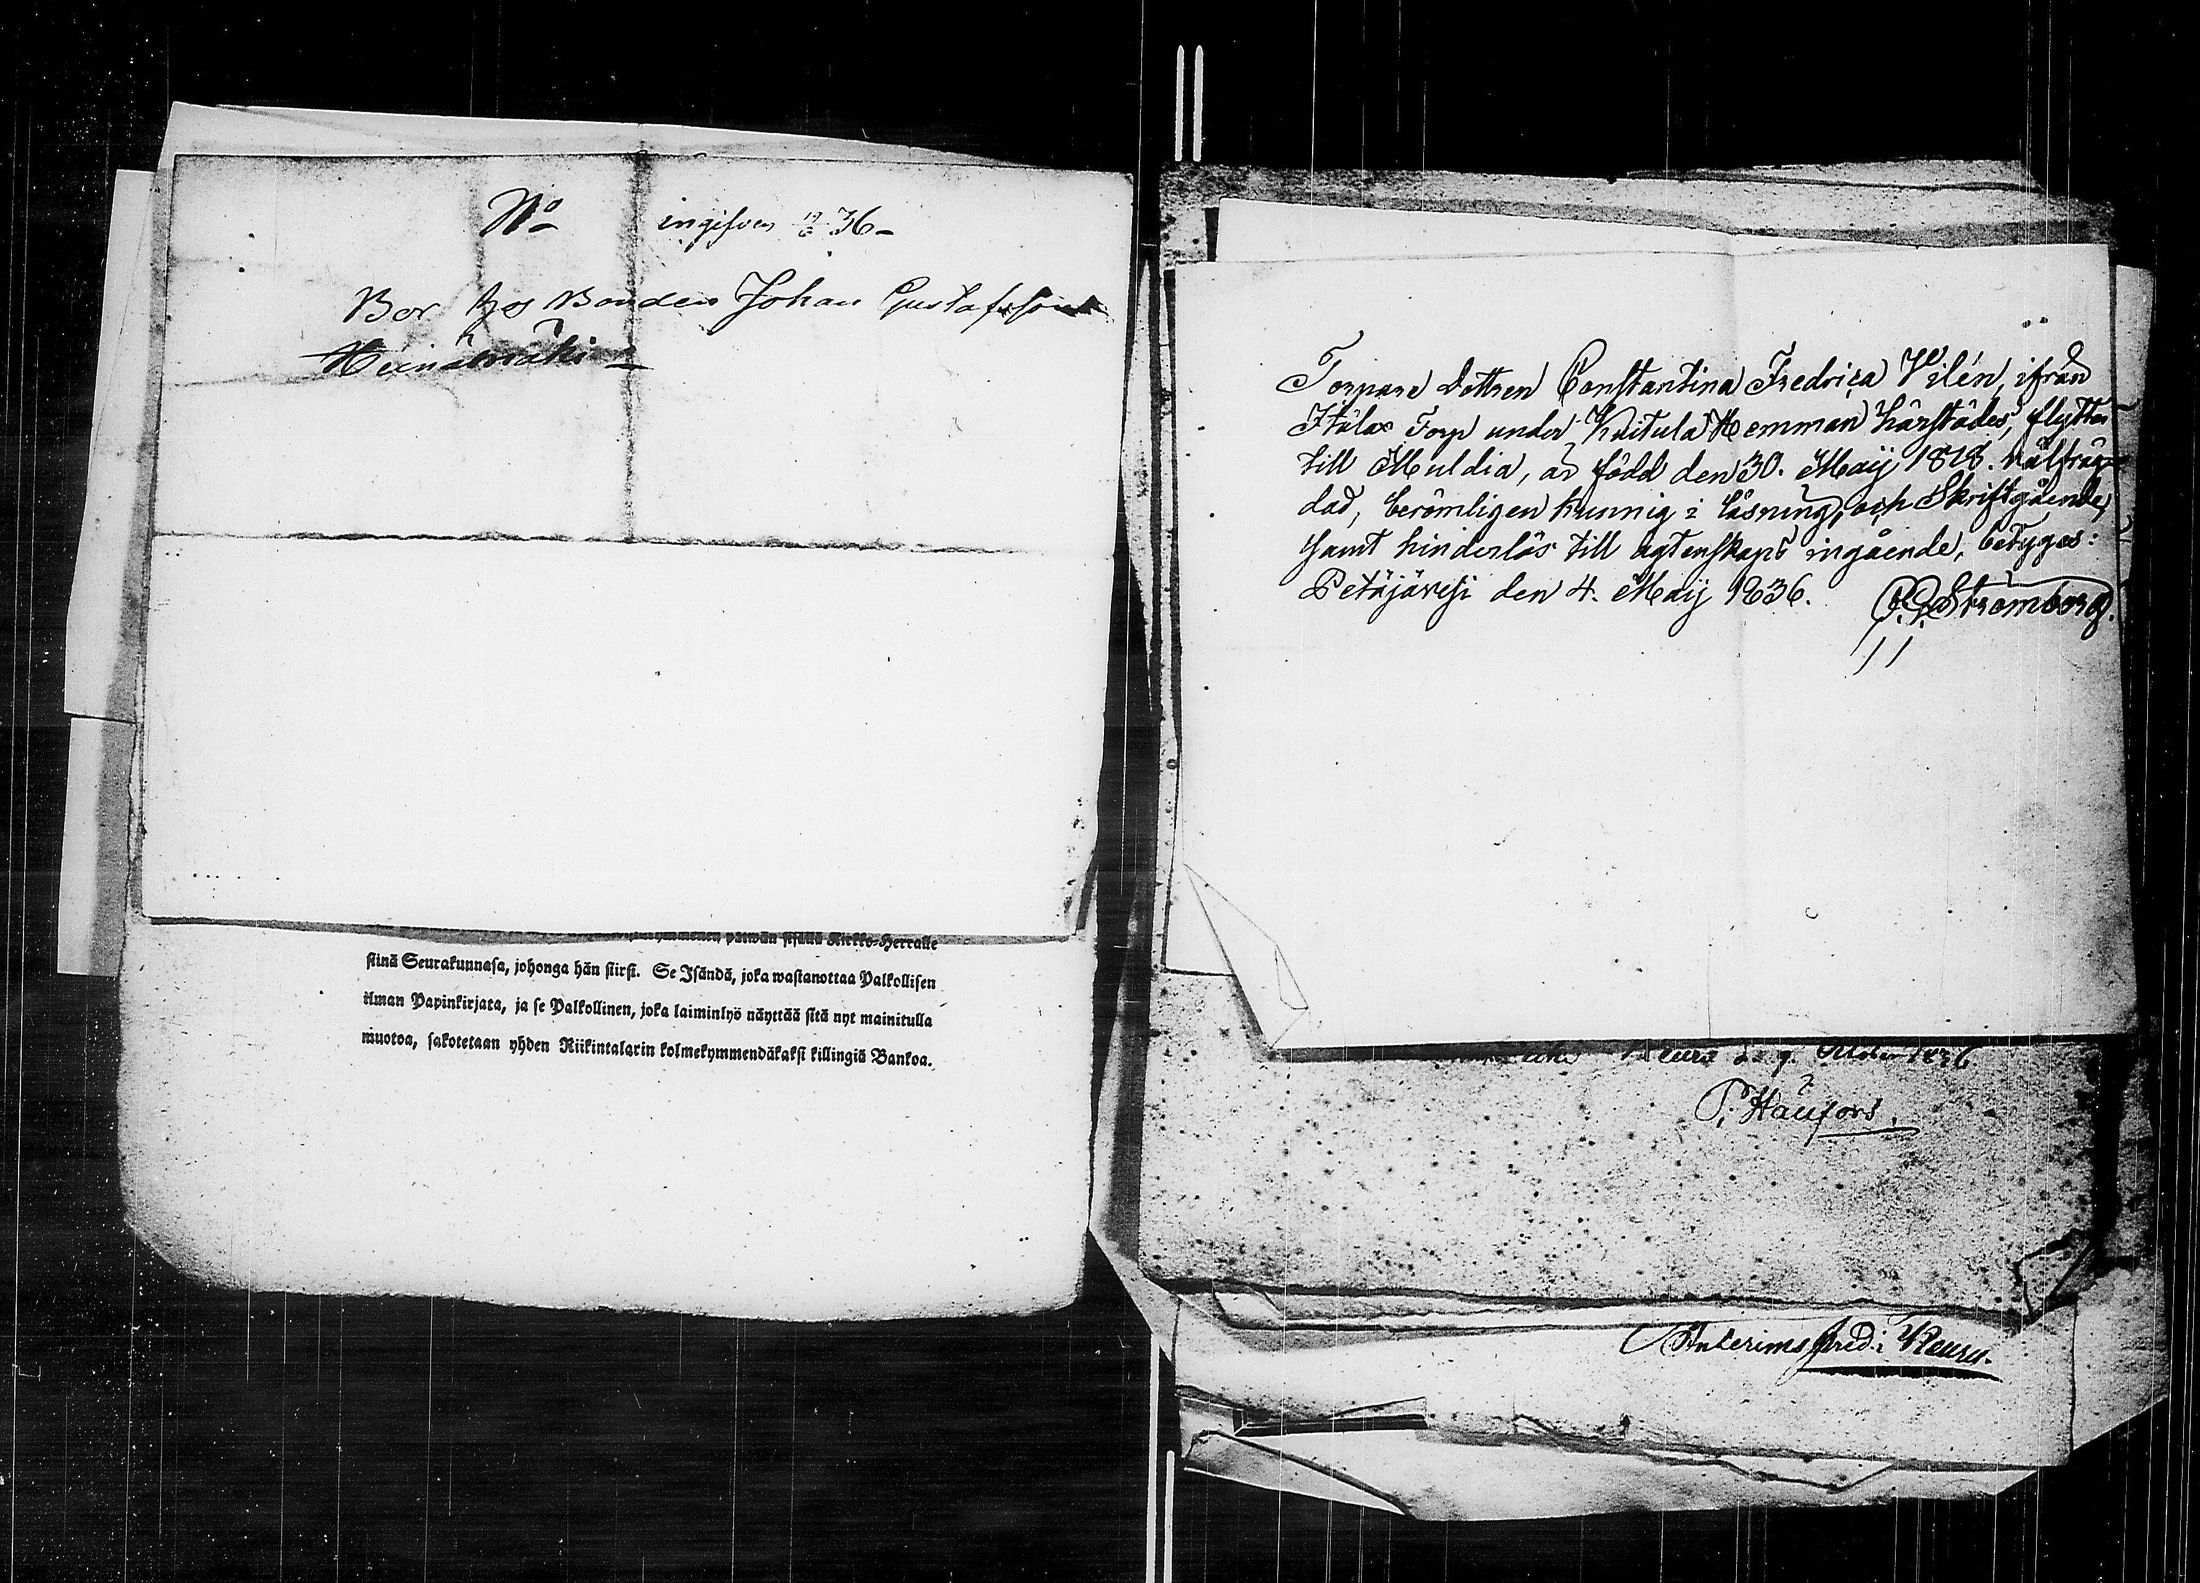 No ingifven 19/6 36-
Bor hos Bonden Johan Gustafsson
Heinämäki
päiwän sisällä Kirkko-Herralle
siinä Seurakunnasa, johonga hän siirst. Se Isändä, joka wastanottaa Palkollisen
ilman Papinkirjata, ja se Palkollinen, joka laiminlyö näyttää sitä nyt mainitulla
muotoa, sakotetaan yhden Riikintalarin kolmekymmendäkaksi killingiä Bankoa.
Torpare dottren Constantina Fredrica Vilén, ifrån
Torp under Kuitula Hemman härstädes, flyttar
till Muldia, är född den 30. Maij 1818. välfräg-
dad, berömligen kunnig i läsning, och Skriftgående,
samt hinderlös till ägtenskaps ingående, betyges:
Petäjävesi den 4. Maij 1836. Strömborg.
Keuru d. 9. October 1836
Interims pred: i Keuru.